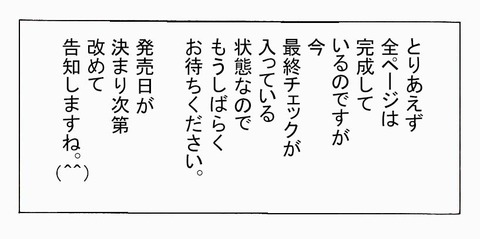 とりあえず
全ページは
完成して
いるのですが
今
最終チェックが
入っている
状態なので
もうしばらく
お待ちください。
発売日が
決まり次第
改めて
告知しますね。
(^^)